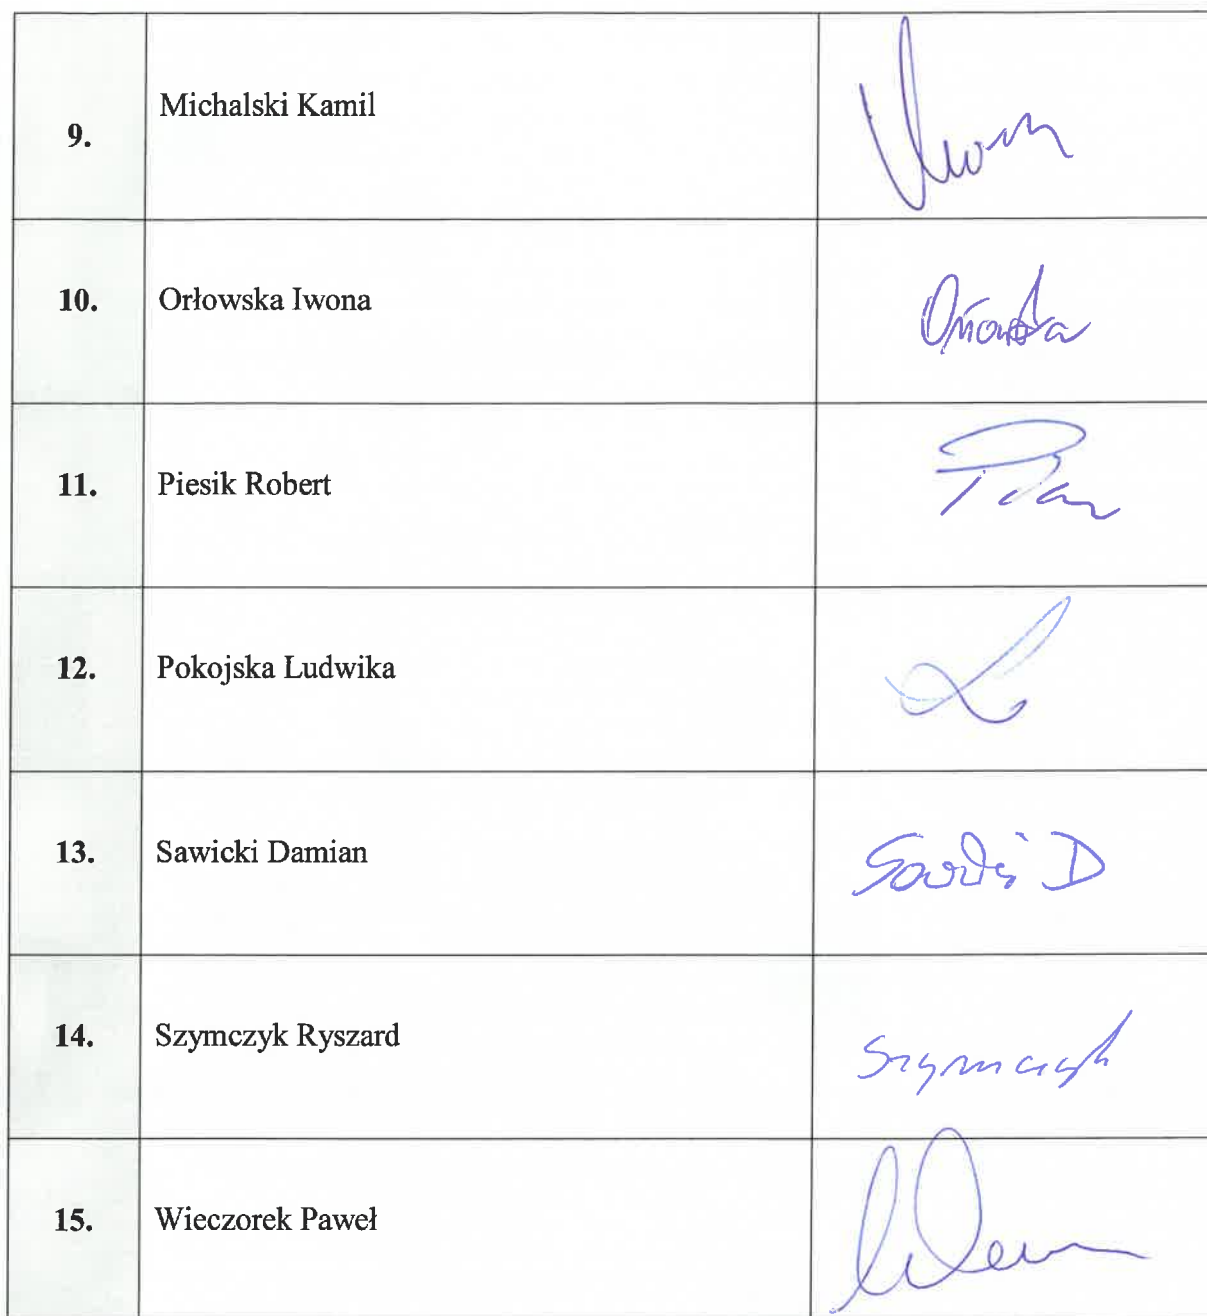 9. Michalski Kamil
10. Orłowska Iwona
11. Piesik Robert
12. Pokojska Ludwika
13. Sawicki Damian
14. Szymczyk Ryszard Szymczyk
15. Wieczorek Paweł